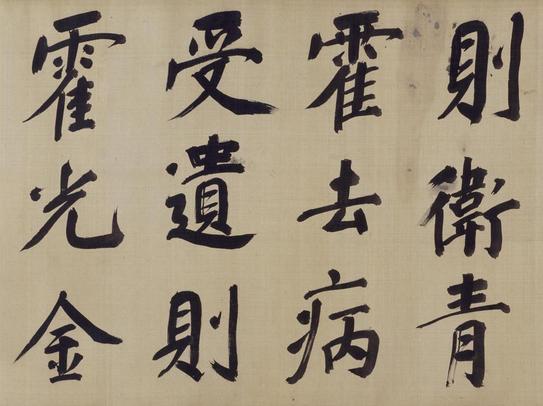 則衛青
霍去病
受遺則
霍光金